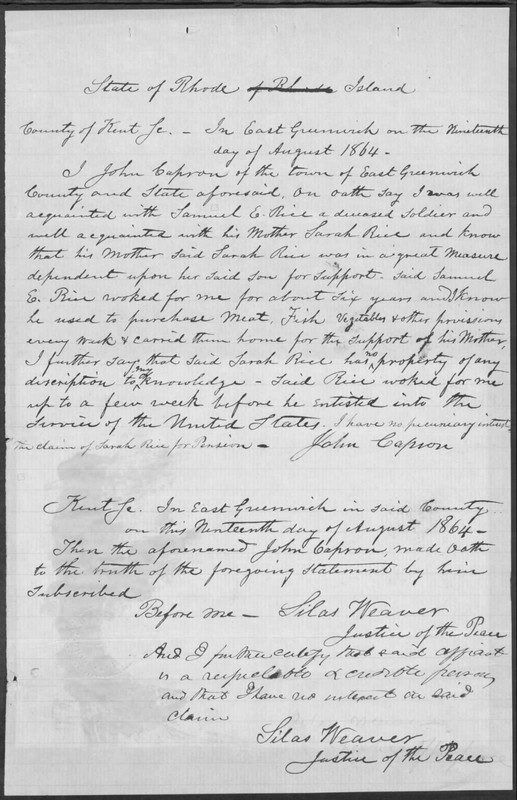 State of Rhode of Rhode Island
County of Kent Sc. - In East Greenwich on the Nineteenth
day of August 1864 -
I John Capron of the town of East Greenwich
County and State aforesaid, On Oath Say I was well
acquainted with Samuel E. Rice a deceased Soldier and
well acquainted with his Mother Sarah Rice and know
that his Mother said Sarah Rice was in a great Measure
dependent upon her said son for support. Said Samuel
E. Rice woked for me for about Six years and I know
he used to purchase Meat, Fish Vegetables & other provisions
every week & carrid them home for the Support of his Mother,
I further Say that said Sarah Rice has no property of any
discription to my Knowledge - Said Rice woked for me
up to a few week before he Entisted into the
Service of the United States. I have no pecuniary interest
the claim of Sarah Rice for Pension - John Capron
Kent Sc. In East Greenwich in said County
on this Nineteenth day of August 1864 -
Then the aforenamed John Capron, made Oath
to the truth of the foregoing Statement by him
Subscribed
Before me - Silas Weaver
Justice of the Peace
And I further certify that said affiant
is a respectable & credible person,
and that I have no interest in said
claim
Silas Weaver
Justice of the Peace